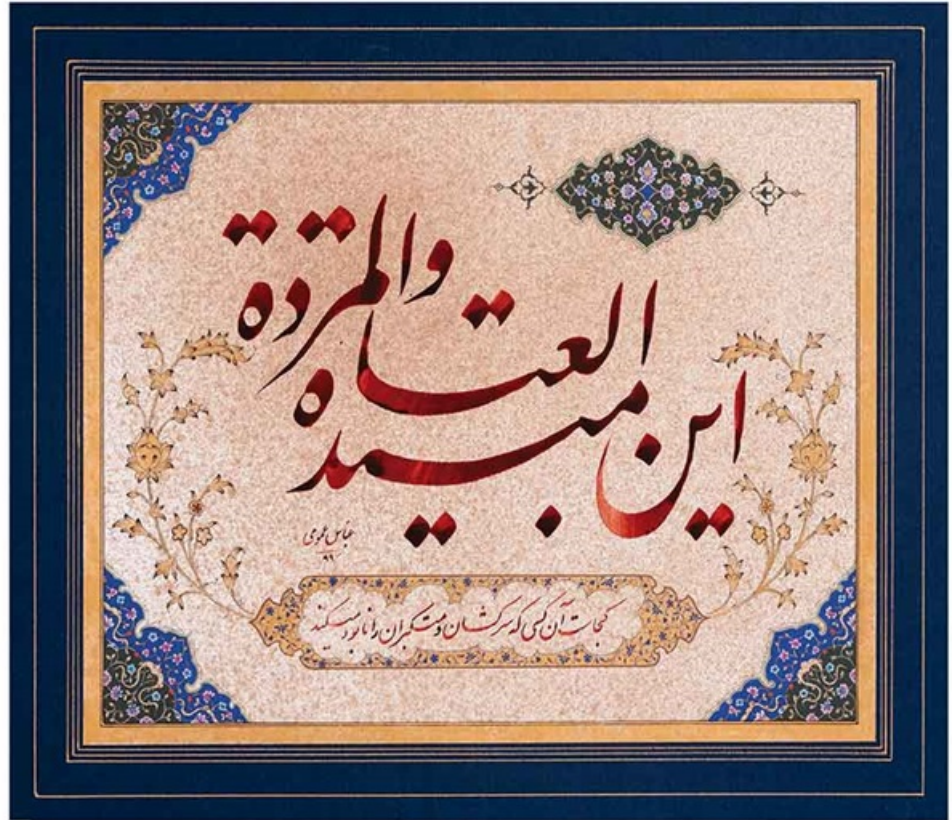 این مبیدة العتاة والمردة
عباس عمومی
۹۹
کجاست آن کسی که سرکشان و متکبران را نابود میکند